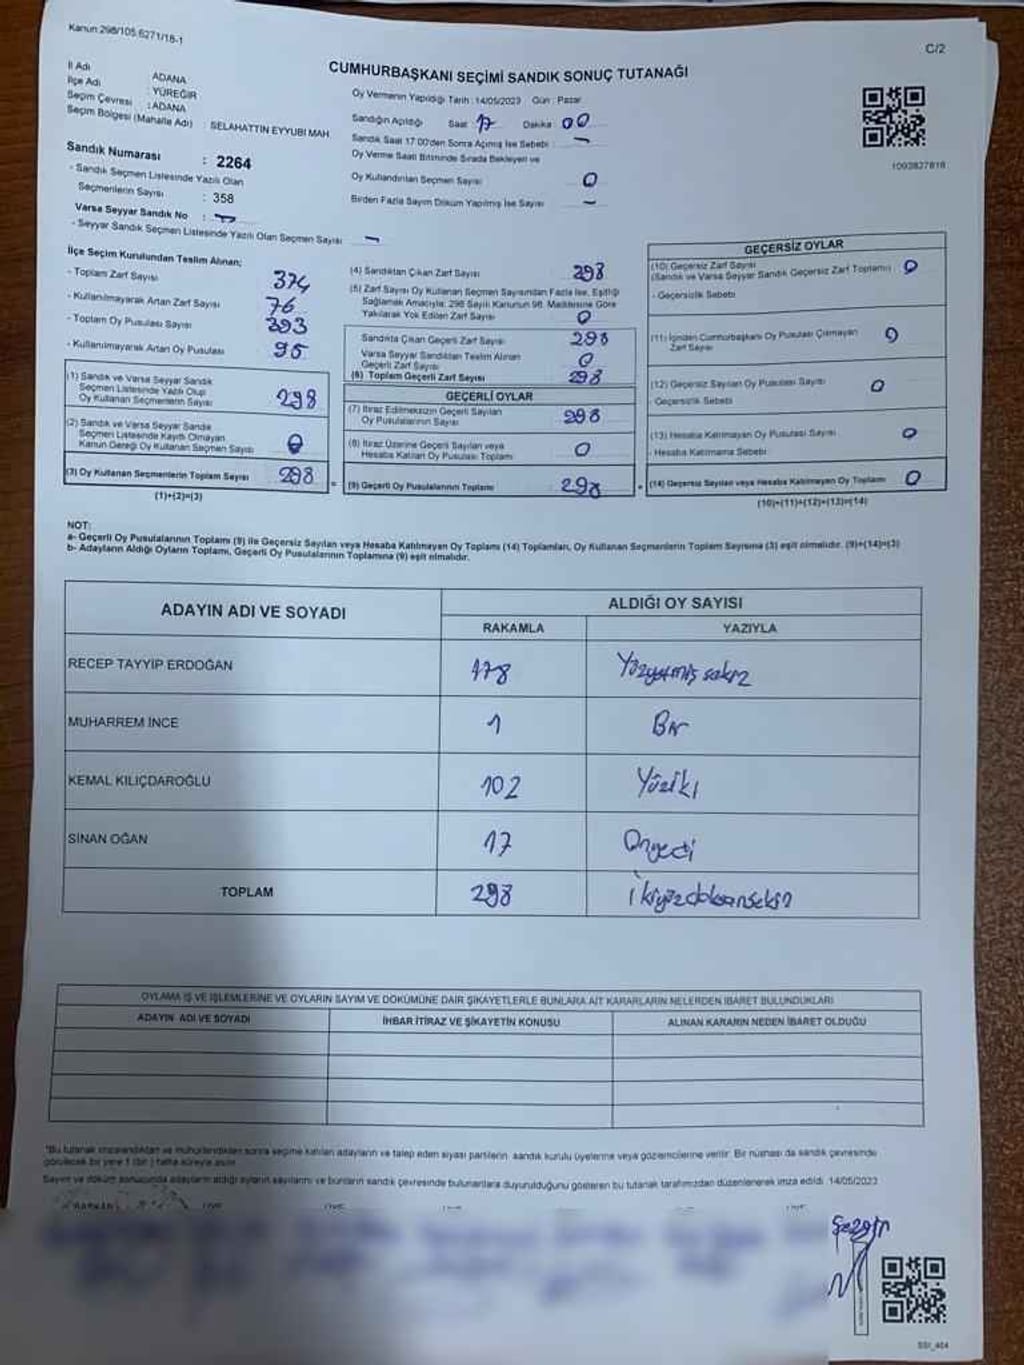 Kanun:298/105.6271/18-1
C/2
CUMHURBAŞKANI SEÇİMİ SANDIK SONUÇ TUTANAĞI
İl Adı ADANA
İlçe Adı : YÜREĞİR
Seçim Çevresi : ADANA
Seçim Bölgesi (Mahalle Adı) : SELAHATTİN EYYUBİ MAH.
Sandık Numarası : 2264
- Sandık Seçmen Listesinde Yazılı Olan
Seçmenlerin Sayısı : 358
Varsa Seyyar Sandık No : -
- Seyyar Sandık Seçmen Listesinde Yazılı Olan Seçmen Sayısı -
Oy Vermenin Yapıldığı Tarih : 14/05/2023 Gün : Pazar
Sandığın Açıldığı Saat 17 Dakika 00
Sandık Saat 17:00'den Sonra Açılmış İse Sebebi : -
Oy Verme Saati Bitiminde Sırada Bekleyen ve
Oy Kullandırılan Seçmen Sayısı 0
Birden Fazla Sayım Döküm Yapılmış İse Sayısı -
1093827818
İlçe Seçim Kurulundan Teslim Alınan;
- Toplam Zarf Sayısı 374
- Kullanılmayarak Artan Zarf Sayısı 76
- Toplam Oy Pusulası Sayısı 393
- Kullanılmayarak Artan Oy Pusulası 95
(1) Sandık ve Varsa Seyyar Sandık
Seçmen Listesinde Yazılı Olup
Oy Kullanan Seçmenlerin Sayısı 298
(2) Sandık ve Varsa Seyyar Sandık
Seçmen Listesinde Kayıtlı Olmayan
Kanun Gereği Oy Kullanan Seçmen Sayısı 0
(3) Oy Kullanan Seçmenlerin Toplam Sayısı 298
(1)+(2)=(3)
(4) Sandıktan Çıkan Zarf Sayısı 298
(5) Zarf Sayısı Oy Kullanan Seçmen Sayısından Fazla İse, Eşitliği
Sağlamak Amacıyla; 298 Sayılı Kanunun 98. Maddesine Göre
Yakılarak Yok Edilen Zarf Sayısı 0
Sandıkta Çıkan Geçerli Zarf Sayısı 298
Varsa Seyyar Sandıktan Teslim Alınan
Geçerli Zarf Sayısı 0
(6) Toplam Geçerli Zarf Sayısı 298
GEÇERLİ OYLAR
(7) İtiraz Edilmeksizin Geçerli Sayılan
Oy Pusulalarının Sayısı 298
(8) İtiraz Üzerine Geçerli Sayılan veya
Hesaba Katılan Oy Pusulası Toplamı 0
= (9) Geçerli Oy Pusulalarının Toplamı 298 +
GEÇERSİZ OYLAR
(10) Geçersiz Zarf Sayısı
(Sandık ve Varsa Seyyar Sandık Geçersiz Zarf Toplamı) 0
- Geçersizlik Sebebi
(11) İçinden Cumhurbaşkanı Oy Pusulası Çıkmayan
Zarf Sayısı 0
(12) Geçersiz Sayılan Oy Pusulası Sayısı 0
- Geçersizlik Sebebi
(13) Hesaba Katılmayan Oy Pusulası Sayısı 0
- Hesaba Katılmama Sebebi
(14) Geçersiz Sayılan veya Hesaba Katılmayan Oy Toplamı 0
(10)+(11)+(12)+(13)=(14)
NOT:
a- Geçerli Oy Pusulalarının Toplamı (9) ile Geçersiz Sayılan veya Hesaba Katılmayan Oy Toplamı (14) Toplamları, Oy Kullanan Seçmenlerin Toplam Sayısına (3) eşit olmalıdır. (9)+(14)=(3)
b- Adayların Aldığı Oyların Toplamı, Geçerli Oy Pusulalarının Toplamına (9) eşit olmalıdır.
ADAYIN ADI VE SOYADI
ALDIĞI OY SAYISI
RAKAMLA YAZIYLA
RECEP TAYYİP ERDOĞAN 178 Yüzyetmiş sekiz
MUHARREM İNCE 1 Bir
KEMAL KILIÇDAROĞLU 102 Yüziki
SİNAN OĞAN 17 Onyedi
TOPLAM 298 ikiyüzdoksansekiz
OYLAMA İŞ VE İŞLEMLERİNE VE OYLARIN SAYIM VE DÖKÜMÜNE DAİR ŞİKAYETLERLE BUNLARA AİT KARARLARIN NELERDEN İBARET BULUNDUKLARI
ADAYIN ADI VE SOYADI İHBAR İTİRAZ VE ŞİKAYETİN KONUSU ALINAN KARARIN NEDEN İBARET OLDUĞU
"Bu tutanak imzalandıktan ve mühürlendikten sonra seçime katılan adayların ve talep eden siyasi partilerin sandık kurulu üyelerine veya gözlemcilerine verilir. Bir nüshası da sandık çevresinde
görülecek bir yere 1 (bir) hafta süreyle asılır.
Sayım ve döküm sonucunda adayların aldığı oyların sayılarını ve bunların sandık çevresinde bulunanlara duyurulduğunu gösteren bu tutanak tarafımızdan düzenlenerek imza edildi. 14/05/2023
BAŞKAN
Sezgin
SSI_464